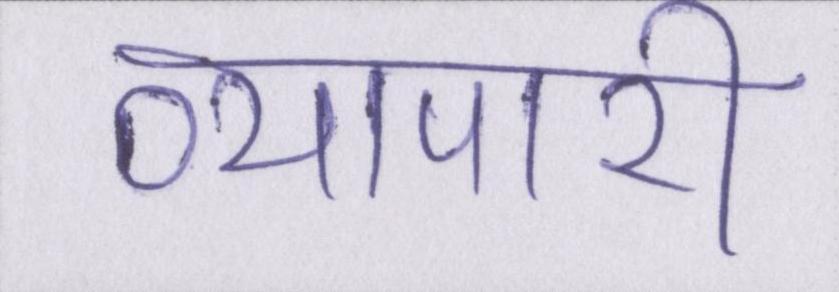 व्यापारी